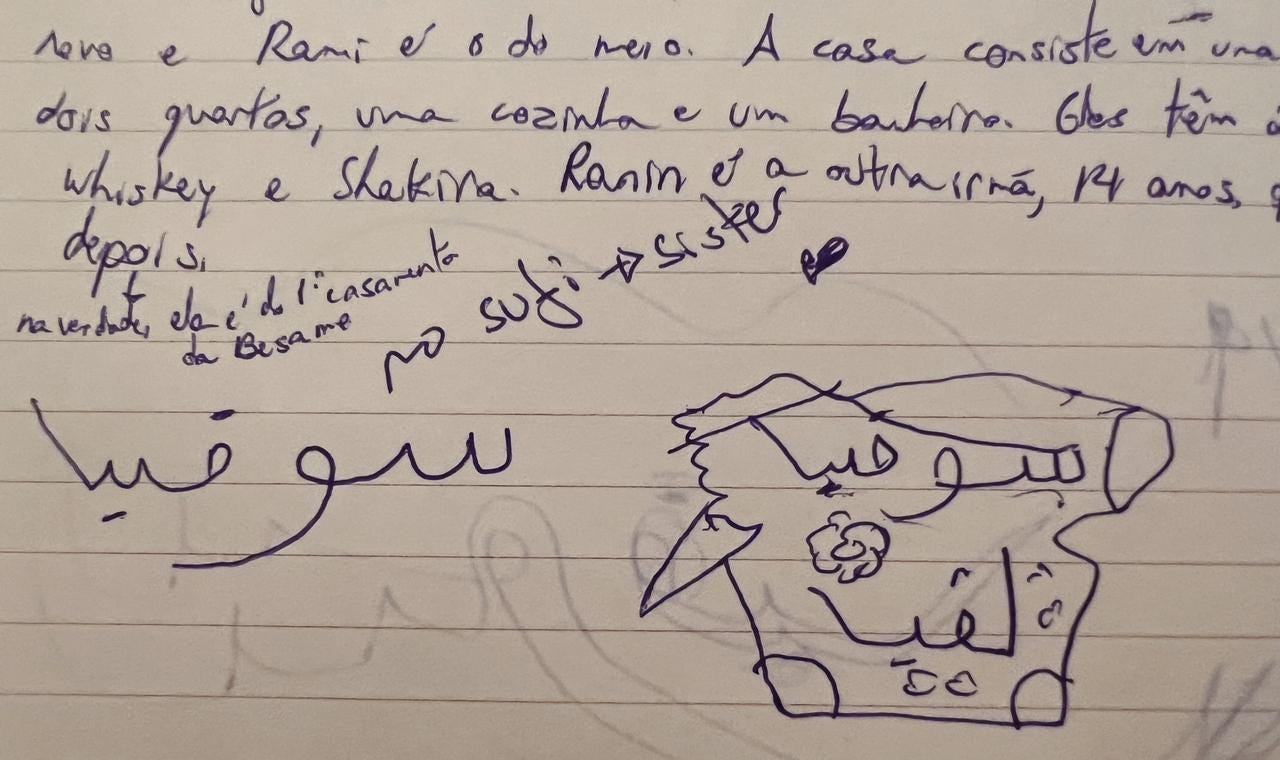 novo e Rami é o do meio. A casa consiste em uma
dois quartos, uma cozinha e um banheiro. Eles têm
whiskey e Shakira. Ranin é a outra irmã, 14 anos,
depois.
na verdade, ela é do 1º casamento
da Besame
no sufi → sister
سوفيا
سوفيا